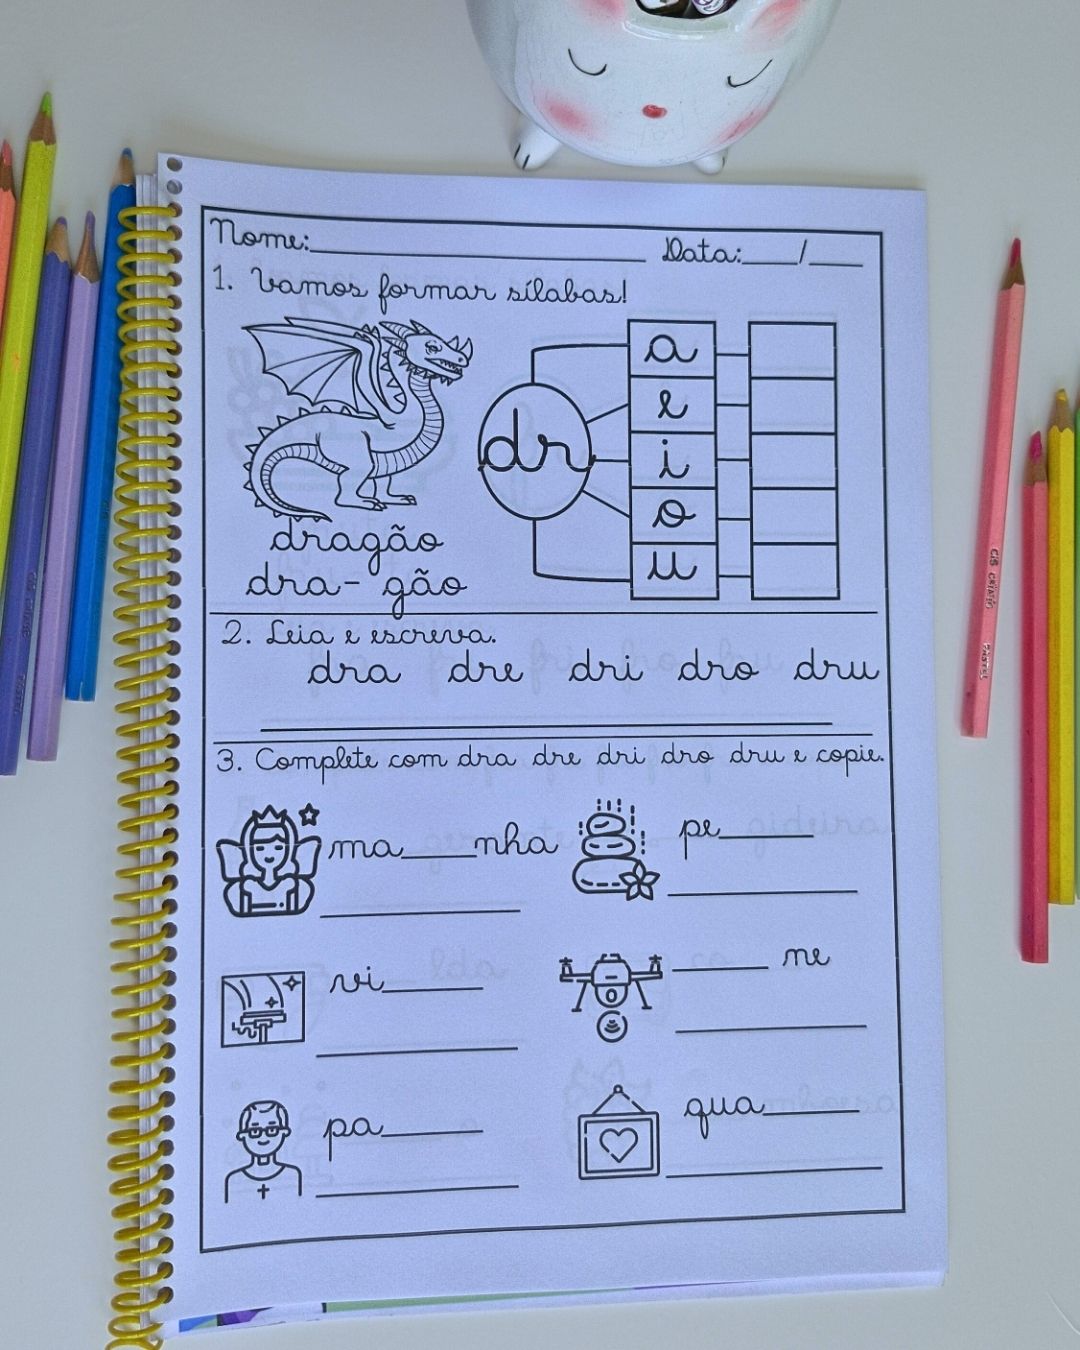 Nome:__________ Data:____/____
1. Vamos formar sílabas!
dr
a
e
i
o
u
dragão
dra- gão
2. Leia e escreva.
dra dre dri dro dru
3. Complete com dra dre dri dro dru e copie.
ma____nha
pe______
vi______
______ ne
pa______
qua______
CiS CRIATIC
PASTEL